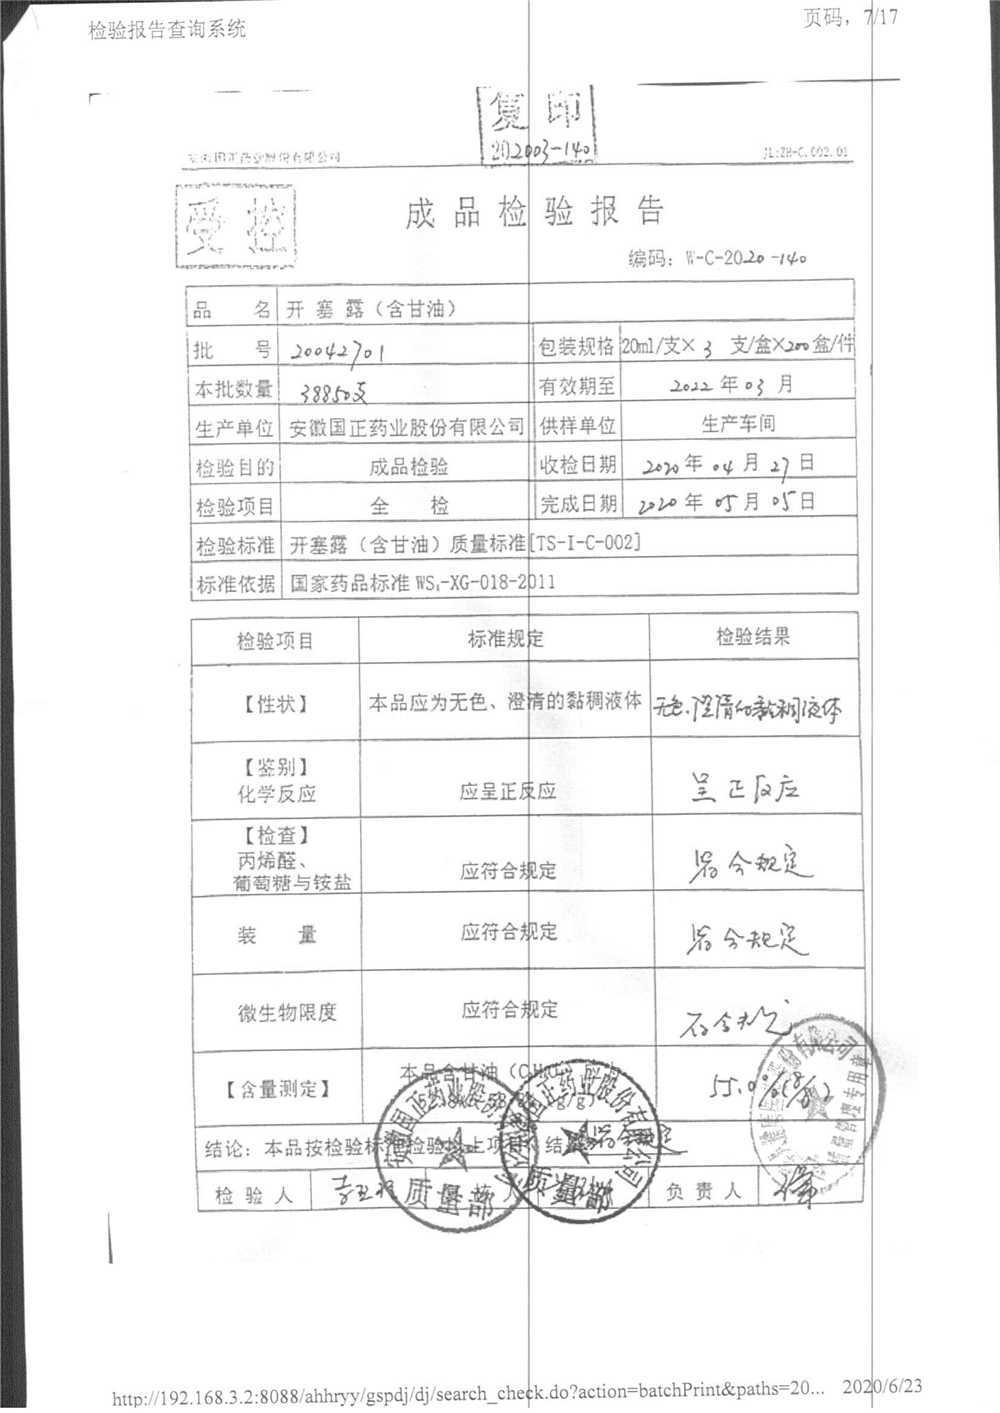 检验报告查询系统
页码，7/17
复印
202003-140
安徽国正药业股份有限公司
JL:ZH-C.002.01
受控
成品检验报告
编码：W-C-2020-140
品名 开塞露（含甘油）
批号 20042701 包装规格 20ml/支×3 支/盒×200盒/件
本批数量 38850支 有效期至 2022年03月
生产单位 安徽国正药业股份有限公司 供样单位 生产车间
检验目的 成品检验 收检日期 2020年04月27日
检验项目 全检 完成日期 2020年05月05日
检验标准 开塞露（含甘油）质量标准[TS-I-C-002]
标准依据 国家药品标准 WS₁-XG-018-2011
检验项目 标准规定 检验结果
【性状】 本品应为无色、澄清的黏稠液体 无色、澄清的黏稠液体
【鉴别】
化学反应 应呈正反应 呈正反应
【检查】
丙烯醛、
葡萄糖与铵盐 应符合规定 符合规定
装量 应符合规定 符合规定
微生物限度 应符合规定 符合规定
【含量测定】 本品含甘油 55.0%
结论：本品按检验标准检验以上项目，结果
检验人 负责人
安徽国正药业股份有限公司
质量部
安徽国正药业股份有限公司
质量部
安徽国正药业股份有限公司
质量管理专用章
http://192.168.3.2:8088/ahhryy/gspdj/dj/search_check.do?action=batchPrint&paths=20... 2020/6/23